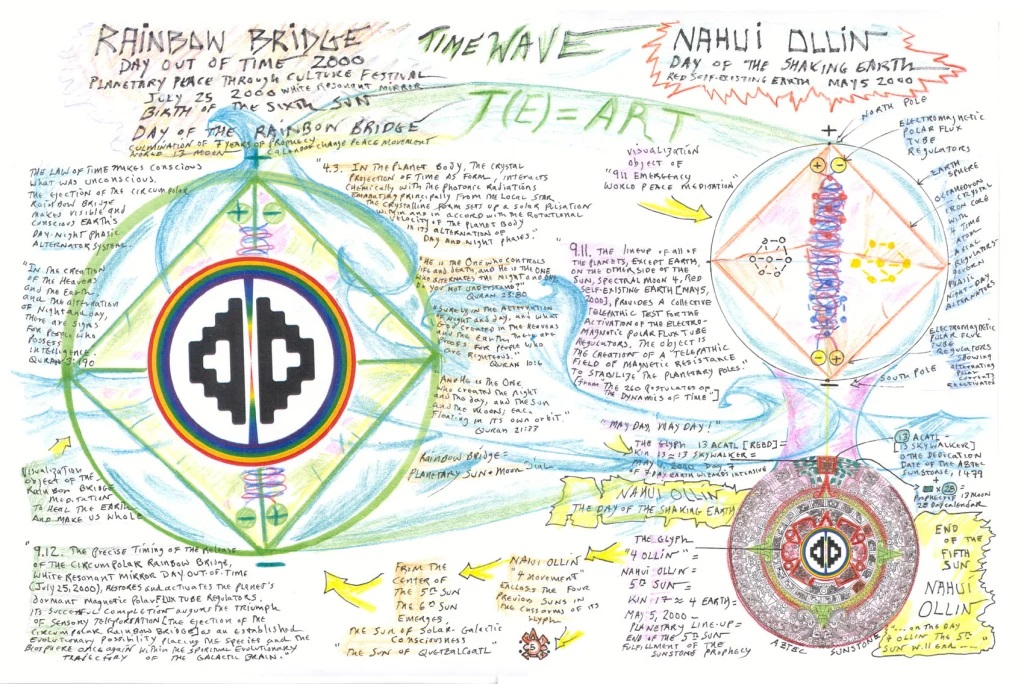 RAINBOW BRIDGE
DAY OUT OF TIME 2000
PLANETARY PEACE THROUGH CULTURE FESTIVAL
JULY 25, 2000 WHITE RESONANT MIRROR
BIRTH OF THE SIXTH SUN
DAY OF THE RAINBOW BRIDGE
CULMINATION OF 7 YEARS OF PROPHECY
WORLD 13 MOON CALENDAR CHANGE PEACE MOVEMENT
TIME WAVE
T(E) = ART
NAHUI OLLIN
DAY OF THE SHAKING EARTH
RED SELF-EXISTING EARTH MAY 5 2000
THE LAW OF TIME MAKES CONSCIOUS
WHAT WAS UNCONSCIOUS.
THE EJECTION OF THE CIRCUMPOLAR
RAINBOW BRIDGE
MAKES VISIBLE AND
CONSCIOUS EARTH'S
DAY-NIGHT PHASIC
ALTERNATOR SYSTEM.
"IN THE CREATION
OF THE HEAVENS
AND THE EARTH
AND THE ALTERNATION
OF NIGHT AND DAY,
THERE ARE SIGNS
FOR PEOPLE WHO
POSSESS
INTELLIGENCE."
QURAN 3:190
VISUALIZATION
OBJECT OF THE
RAINBOW BRIDGE
MEDITATION
TO HEAL THE EARTH
AND MAKE US WHOLE
"4.3. IN THE PLANET BODY, THE CRYSTAL
PROJECTION OF TIME AS FORM, INTERACTS
CHEMICALLY WITH THE PHOTONIC RADIATIONS
EMANATING PRINCIPALLY FROM THE LOCAL STAR.
THE CRYSTALLINE FORM SETS UP A SOLAR PULSATION
WITHIN AND IN ACCORD WITH THE ROTATIONAL
VELOCITY OF THE PLANET BODY
IN ITS ALTERNATION OF
DAY AND NIGHT PHASES."
"HE IS THE ONE WHO CONTROLS
LIFE AND DEATH, AND HE IS THE ONE
WHO ALTERNATES THE NIGHT AND DAY.
DO YOU NOT UNDERSTAND?"
QURAN 23:80
"SURELY IN THE ALTERNATION
OF NIGHT AND DAY, AND WHAT
GOD CREATED IN THE HEAVENS
AND THE EARTH, THERE ARE
PROOFS FOR PEOPLE WHO
ARE RIGHTEOUS."
QURAN 10:6
"AND HE IS THE ONE
WHO CREATED THE NIGHT
AND THE DAY, AND THE SUN
AND THE MOON; EACH
FLOATING IN ITS OWN ORBIT."
QURAN 21:33
RAINBOW BRIDGE =
PLANETARY SUN + MOON
VISUALIZATION
OBJECT OF
"911 EMERGENCY
WORLD PEACE MEDITATION"
9.11. THE LINEUP OF ALL OF
THE PLANETS, EXCEPT EARTH,
ON THE OTHER SIDE OF THE
SUN, SPECTRAL MOON 4, RED
SELF-EXISTING EARTH [MAY 5,
2000], PROVIDES A COLLECTIVE
TELEPATHIC TEST FOR THE
ACTIVATION OF THE ELECTRO-
MAGNETIC POLAR FLUX TUBE
REGULATORS. THE OBJECT IS
THE CREATION OF A TELEPATHIC
FIELD OF MAGNETIC RESISTANCE
TO STABILIZE THE PLANETARY POLES."
[FROM THE 260 POSTULATES OF
THE DYNAMICS OF TIME"]
NORTH POLE
ELECTROMAGNETIC
POLAR FLUX
TUBE
REGULATORS
EARTH
SPHERE
OCTAHEDRON
CRYSTAL
IRON CORE
WITH
4 TIME
ATOM
AXIAL
REGULATORS
PHASIC
NIGHT-DAY
ALTERNATORS
ELECTROMAGNETIC
POLAR FLUX
TUBE
REGULATORS
SHOWING
ALTERNATING
POLAR
REACTIVATED
SOUTH POLE
"MAY DAY, WAY DAY!"
THE GLYPH 13 ACATL [REED] =
KIN 13 = 13 SKYWALKER =
MAY 1, 2000 DAY 7
OF 7 DAY EARTH WIZARDS INTENSIVE
NAHUI OLLIN
THE DAY OF THE SHAKING EARTH
13 ACATL
[13 SKYWALKER]
= THE DEDICATION
DATE OF THE AZTEC
SUNSTONE, 1479
+
x 28 =
PROPHECY OF 13 MOON
28 DAY CALENDAR
END
OF THE
FIFTH
SUN
NAHUI
OLLIN
"... ON THE DAY
4 OLLIN THE 5TH
SUN WILL END ..."
THE GLYPH
"4 OLLIN" =
NAHUI OLLIN =
5TH SUN =
KIN 17 = 4 EARTH =
MAY 5, 2000 =
PLANETARY LINE-UP =
END OF THE 5TH SUN
FULFILLMENT OF THE
SUNSTONE PROPHECY
AZTEC SUNSTONE
NAHUI OLLIN
"4 MOVEMENT"
ENCLOSES THE FOUR
PREVIOUS SUNS IN
THE CHASMS OF ITS
GLYPH
5
FROM THE
CENTER OF
THE 5TH SUN
THE 6TH SUN
EMERGES.
THE SUN OF SOLAR-GALACTIC
CONSCIOUSNESS
"THE SUN OF QUETZALCOATL"
"9.12. THE PRECISE TIMING OF THE RELEASE
OF THE CIRCUMPOLAR RAINBOW BRIDGE,
WHITE RESONANT MIRROR DAY OUT-OF-TIME
(JULY 25, 2000), RESTORES AND ACTIVATES THE PLANET'S
DORMANT MAGNETIC POLAR FLUX TUBE REGULATORS.
ITS SUCCESSFUL COMPLETION AUGURS THE TRIUMPH
OF SENSORY TELEPORTATION [THE EJECTION OF THE
CIRCUMPOLAR RAINBOW BRIDGE] AS AN ESTABLISHED
EVOLUTIONARY POSSIBILITY PLACING THE SPECIES AND THE
BIOSPHERE ONCE AGAIN WITHIN THE SPIRITUAL EVOLUTIONARY
TRAJECTORY OF THE GALACTIC BRAIN."